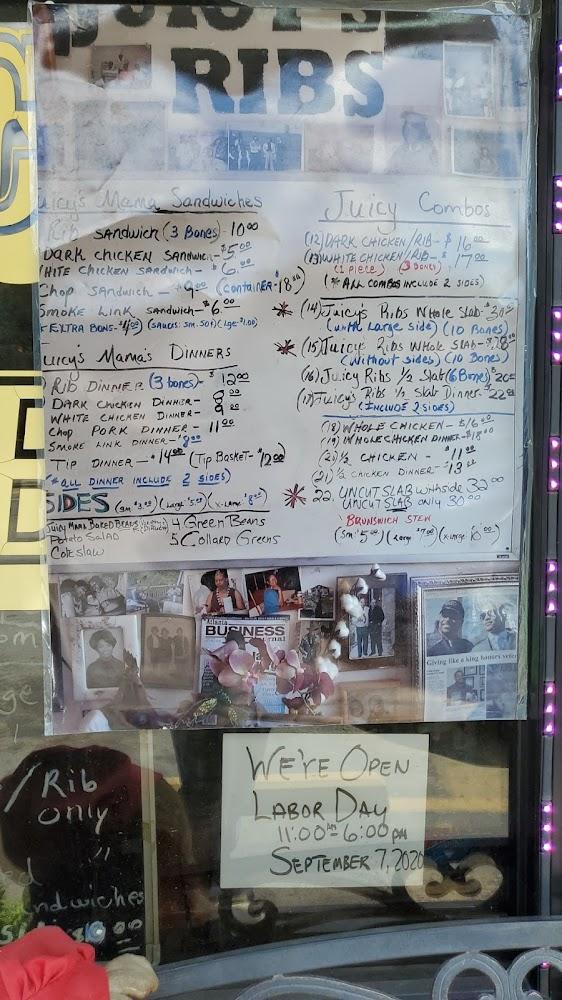 JUICY'S
RIBS
Juicy's Mama Sandwiches
Rib Sandwich (3 Bones) - 10.00
Dark Chicken Sandwich - $5.00
White Chicken Sandwich - $6.00
Chop Sandwich - $9.00 (Container - $18.00)
Smoke Link Sandwich - $6.00
Extra Bons - $4.00) (Sauces: Sm. 50¢) (Lge $1.00)
Juicy's Mama's Dinners
Rib Dinner (3 bones) - $12.00
Dark Chicken Dinner -
White Chicken Dinner - 9.00
Chop Pork Dinner - 11.00
Smoke Link Dinner - $8.00
Tip Dinner - $14.00 (Tip Basket - $12.00)
*All Dinner Include 2 Sides)
Sides (Sm. $3.00) (Large $5.00) (X-Large $8.00)
Juicy Mama Baked Beans
Potato Salad
Coleslaw
4 Green Beans
5 Collard Greens
Juicy Combos
(12) Dark Chicken/Rib - $16.00
(13) White Chicken/Rib - $17.00
(1 piece) (3 Bones)
(* All Combos Include 2 Sides)
* (14) Juicy's Ribs Whole Slab -
(with Large side) (10 Bones)
* (15) Juicy's Ribs Whole Slab -
(without sides) (10 Bones)
(16) Juicy Ribs 1/2 Slab (6 Bones) $20.00
(17) Juicy's Ribs 1/2 Slab Dinner - $22.00
(Include 2 Sides)
(18) Whole Chicken - $16.00
(19) Whole Chicken Dinner - $18.00
(20) 1/2 Chicken - $11.00
(21) 1/2 Chicken Dinner - $13.00
* 22. Uncut Slab w/side 32.00
Uncut Slab only 30.00
Brunswich Stew
(Sm. $5.00) (Large $7.00) (X-Large $10.00)
Atlanta
BUSINESS
Journal
Giving like a king honors veter
/Rib
only
"
ndwiches
We're Open
Labor Day
11:00 AM - 6:00 pm
September 7, 2020